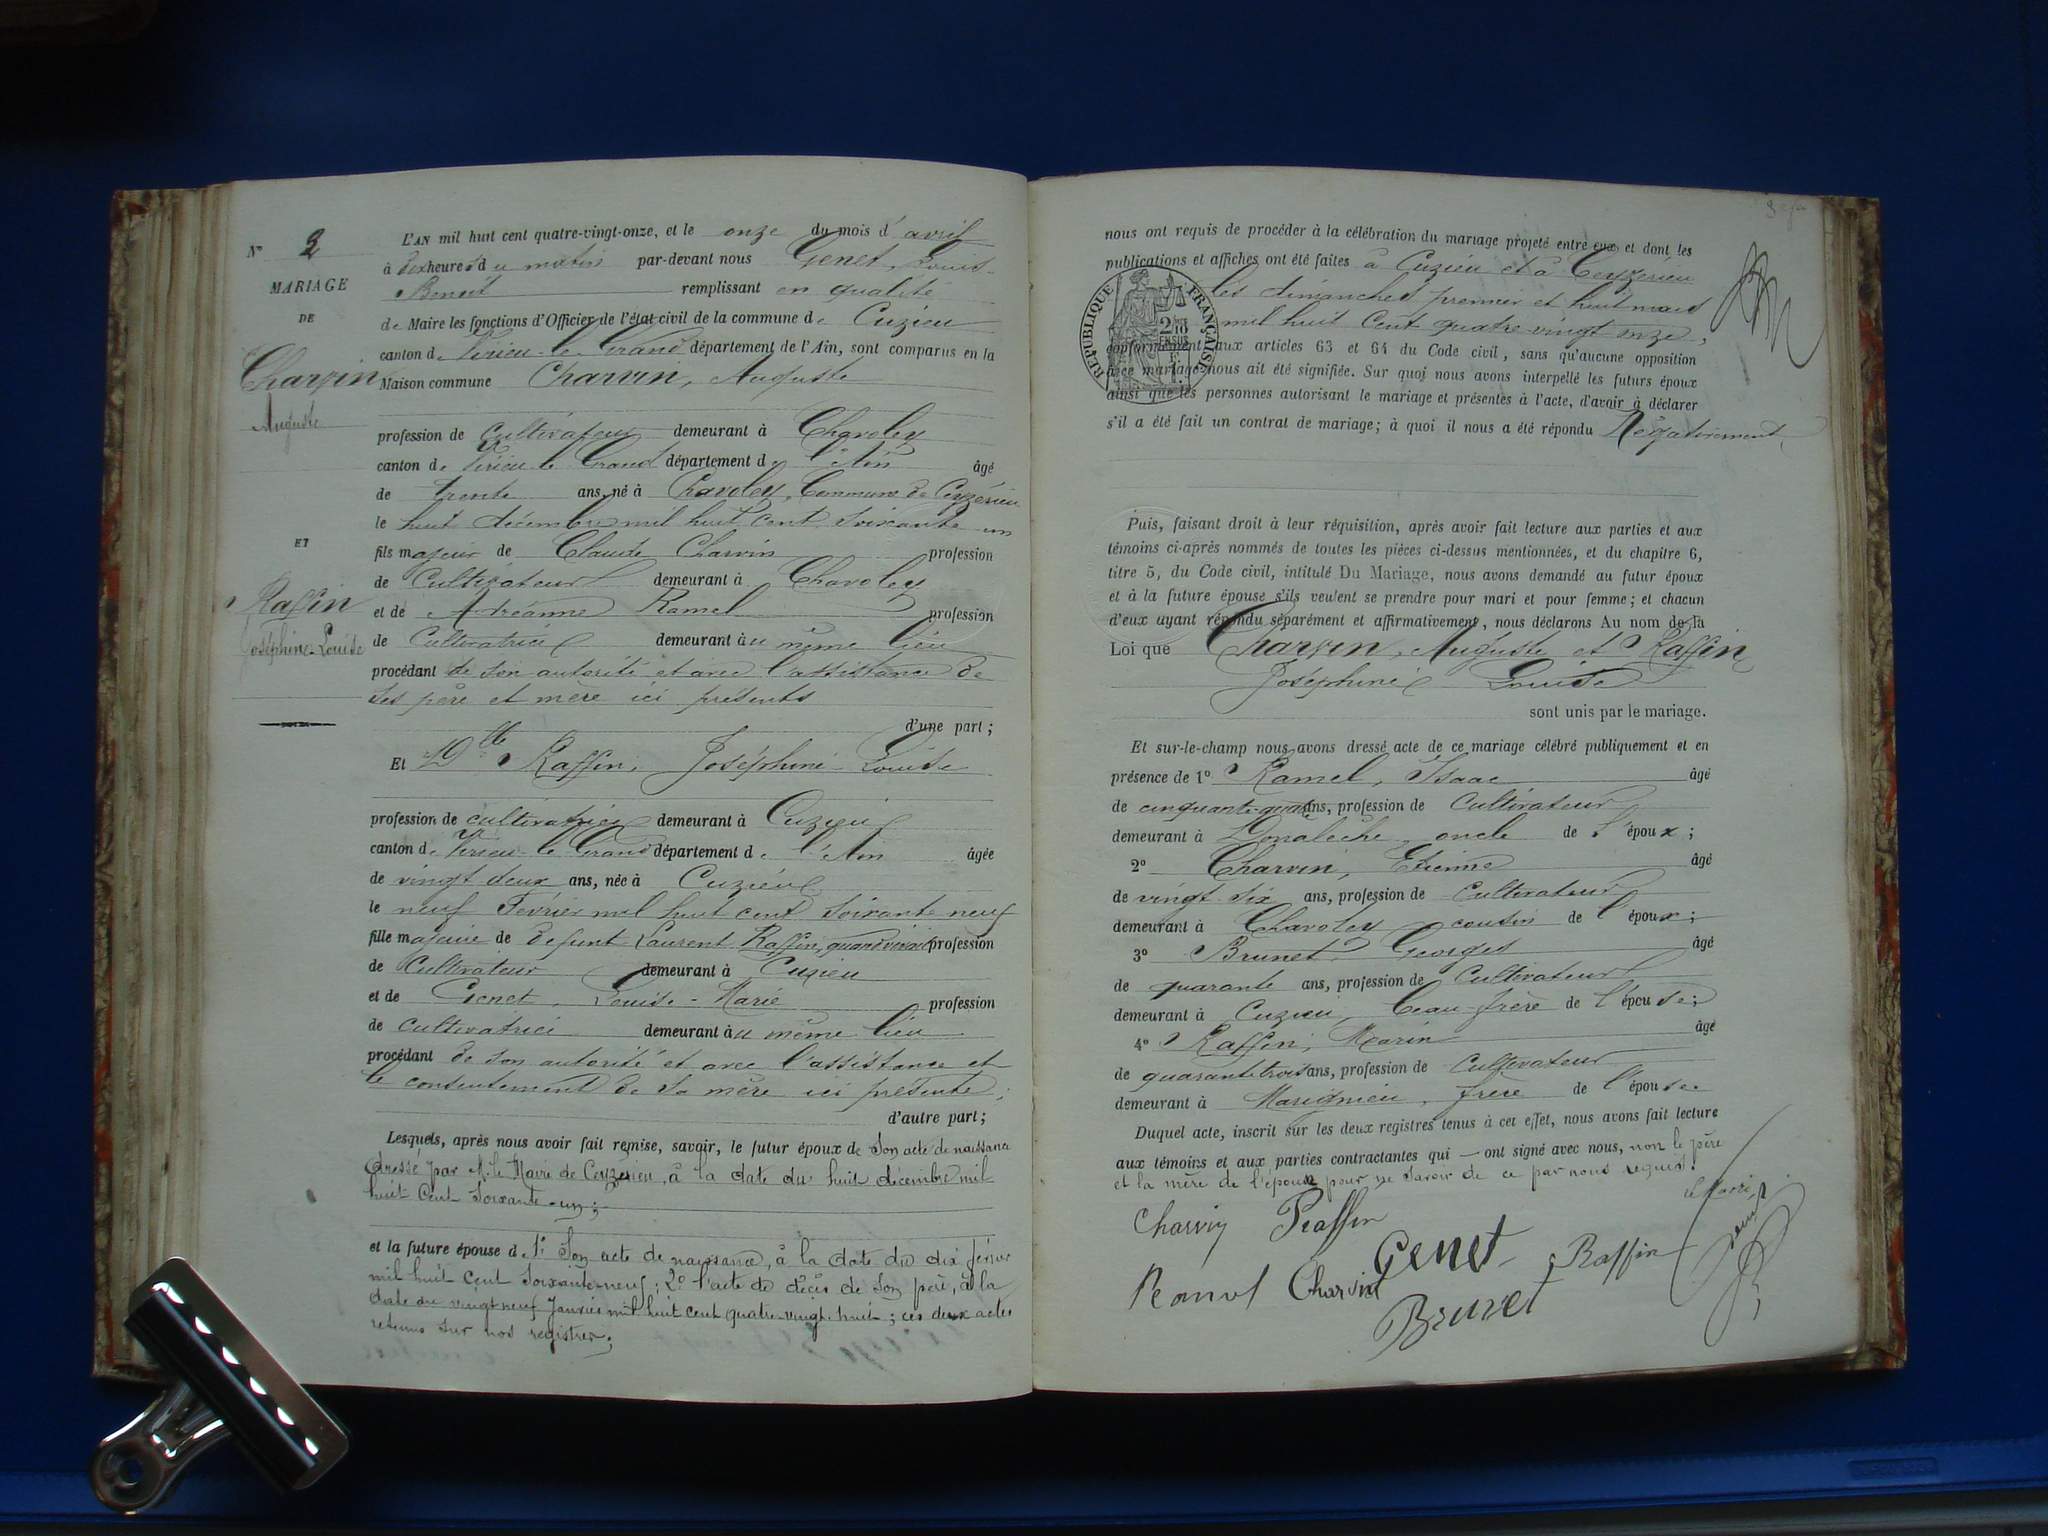 N° 2
MARIAGE
DE
Charvin
Auguste
ET
Raffin
Joséphine-Louise
L'AN mil huit cent quatre-vingt-onze, et le onze du mois d'avril
à dix heures du matin par-devant nous Genet, Louis-
Benoit remplissant en qualité
de Maire les fonctions d'Officier de l'état civil de la commune de Cuzieu
canton de Virieu-le-Grand département de l'Ain, sont comparus en la
Maison commune Charvin, Auguste
profession de cultivateur demeurant à Chavoley
canton de Virieu-le-Grand département de l'Ain âgé
de trente ans, né à Chavoley, Commune de Ceyzérieu
le huit décembre mil huit cent soixante un
fils majeur de Claude Charvin profession
de Cultivateur demeurant à Chavoley
et de Ramel profession
de Cultivatrice demeurant au même lieu
procédant de son autorité et avec l'assistance de
ses père et mère ici présents
d'une part;
Et Dlle Raffin, Joséphine Louise
profession de cultivatrice demeurant à Cuzieu
canton de Virieu-le-Grand département de l'Ain âgée
de vingt deux ans, née à Cuzieu
le neuf Février mil huit cent soixante neuf
fille majeure de défunt Laurent Raffin, quand vivait profession
de Cultivateur demeurant à Cuzieu
et de Genet, Louise-Marie profession
de cultivatrice demeurant au même lieu
procédant de son autorité et avec l'assistance et
le consentement de sa mère ici présente;
d'autre part;
Lesquels, après nous avoir fait remise, savoir, le futur époux de son acte de naissance
dressé par M. le Maire de Ceyzerieu, à la date du huit décembre mil
huit cent soixante-un;
et la future épouse d 1° Son acte de naissance, à la date du dix février
mil huit cent soixante-neuf; 2° l'acte de décès de son père, à la
date du vingt-neuf Janvier mil huit cent quatre-vingt-huit; ces deux actes
retenus sur nos registres.
nous ont requis de procéder à la célébration du mariage projeté entre eux et dont les
publications et affiches ont été faites à Cuzieu et à Ceyzerieu
les dimanches premier et huit mars
mil huit cent quatre-vingt onze,
REPUBLIQUE FRANÇAISE
conformément aux articles 63 et 64 du Code civil, sans qu'aucune opposition
à ce mariage nous ait été signifiée. Sur quoi nous avons interpellé les futurs époux
ainsi que les personnes autorisant le mariage et présentes à l'acte, d'avoir à déclarer
s'il a été fait un contrat de mariage; à quoi il nous a été répondu Négativement
Puis, faisant droit à leur réquisition, après avoir fait lecture aux parties et aux
témoins ci-après nommés de toutes les pièces ci-dessus mentionnées, et du chapitre 6,
titre 5, du Code civil, intitulé Du Mariage, nous avons demandé au futur époux
et à la future épouse s'ils veulent se prendre pour mari et pour femme; et chacun
d'eux ayant répondu séparément et affirmativement, nous déclarons Au nom de la
Loi que Charvin, Auguste et Raffin
Joséphine Louise
sont unis par le mariage.
Et sur-le-champ nous avons dressé acte de ce mariage célébré publiquement et en
présence de 1° Ramel, Isaac âgé
de cinquante-quatre ans, profession de Cultivateur
demeurant à oncle de l'époux;
2° Charvin, Etienne âgé
de vingt-six ans, profession de Cultivateur
demeurant à Chavoley cousin de l'époux;
3° Brunet, Georges âgé
de quarante ans, profession de Cultivateur
demeurant à Cuzieu, beau-frère de l'épouse;
4° Raffin, Marin âgé
de quarante trois ans, profession de Cultivateur
demeurant à Marignieu, frère de l'épouse
Duquel acte, inscrit sur les deux registres tenus à cet effet, nous avons fait lecture
aux témoins et aux parties contractantes qui ont signé avec nous, non le père
et la mère de l'époux pour ne savoir de ce par nous requis.
Le Maire,
Charvin Raffin
Genet Raffin Genet
Ramel Charvin
Brunet